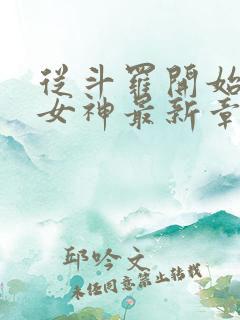 從斗羅開始
女神最新章
邱吟文
未经同意禁止转载